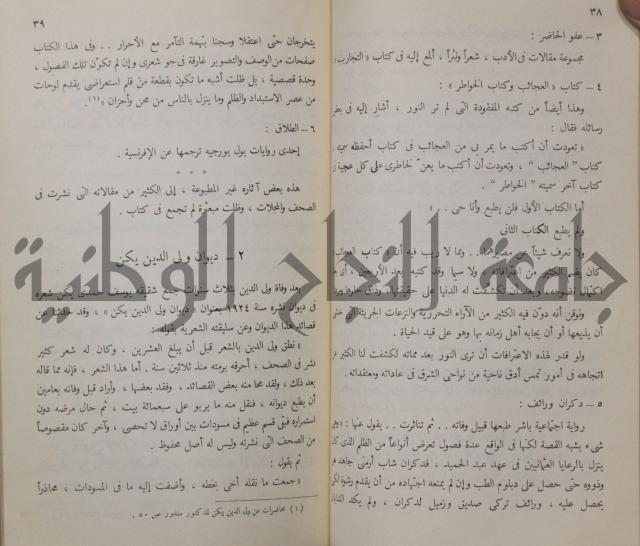 ٣٨
٣ - عفو الخاطر :
مجموعة مقالات فى الأدب ، شعراً ونثراً ، ألمع إليه فى كتاب « التجاريب »
٤ - كتاب « العجائب وكتاب الخواطر » :
وهذا أيضاً من كتبه المفقودة التى لم تر النور ، أشار إليه فى بعض
رسائله فقال :
« تعودت أن أكتب ما يمر بى من العجائب فى كتاب أحفظه سميته
كتاب " العجائب " ، وتعودت أن أكتب ما يعن لخاطرى على كل عجيبة فى
كتاب آخر سميته " الخواطر " .
أما الكتاب الأول فلن يطبع وأنا حى . . »
ولم يطبع الكتاب الثانى
ولا نعرف شيئاً عن مصيرهما . . ومما لا ريب فيه أن كتاب العجائب
كان يضم الكثير من اعترافاته ، ولا سيما وقد كتبه بعد الأربعين ، أى بعد
اكتمال نضوجه ، وبعد أن تكشفت له الدنيا على حقيقتها
ونوقن أنه دون فيه الكثير من الآراء التحررية والنزعات الجريئة التى خشى
أن يذيعها أو أن يجابه أهل زمانه بها وهو على قيد الحياة .
ولو قدر لهذه الاعترافات أن ترى النور بعد مماته لكشفت لنا الكثير من
اتجاهه فى أمور تمس أدق ناحية من نواحى الشرق فى عاداته ومعتقداته .
٥ - دكران ورائف :
رواية اجتماعية باشر طبعها قبيل وفاته . . ثم تناثرت . . يقول عنها :
شىء يشبه القصة لكنها فى الواقع عدة فصول تعرض أنواعاً من الظلم الذى كان
ينزل بالرعايا العثمانيين فى عهد عبد الحميد ، فدكران شاب أرمنى جاهد هو
وذووه حتى حصل على دبلوم الطب وإن لم يمنعه اجتهاده من أن يقدم رشوة لكى
يحصل عليه ، ورائف تركى صديق وزميل لدكران ، ولم يكد الشابان
٣٩
يتخرجان حتى اعتقلا وسجنا بتهمة التآمر مع الأحرار . . وفى هذا الكتاب
صفحات من الوصف والتصوير غارقة فى جو شعرى وإن لم تكون تلك الفصول ،
وحدة قصصية ، بل ظلت أشبه ما تكون بقطعة من فلم استعراضى يقدم لوحات
من عصر الاستبداد والظلم وما ينزل بالناس من محن وأحزان » (١).
٦ - الطلاق :
إحدى روايات بول بورجيه ترجمها عن الإفرنسية .
* * *
هذه بعض آثاره غير المطبوعة ، إلى الكثير من مقالاته التى نشرت فى
الصحف والمجلات ، وظلت مبعثرة لم تجمع فى كتاب .
٢ - ديوان ولى الدين يكن
بعد وفاة ولى الدين بثلاث سنوات جمع شقيقه يوسف حمدى يكن شعره
فى ديوان نشره سنة ١٩٢٤ بعنوان « ديوان ولى الدين يكن » ، وقد حدثنا عن
قصائد هذا الديوان وعن سليقته الشعرية بقوله :
« نطق ولى الدين بالشعر قبل أن يبلغ العشرين ، وكان له شعر كثير
نشر فى الصحف ، أحرقه برمته منذ ثلاثين سنة . أما هذا الشعر ، فإنه مما قاله
بعد ذلك ، ولقد محا منه بعض القصائد ، وفقد بعضها ، وأراد قبل وفاته بعامين
أن يطبع ديوانه ، فنقل منه ما يربو على سبعمائة بيت ، ثم حال مرضه دون
استمراره فبقى قسم عظيم فى مسودات بين أوراق لا تحصى ، وآخر كان مقصوصاً
من الصحف التى نشرته وليس له أصل محفوظ .
ثم يقول :
« جمعت ما نقله أخى بخطه ، وأضفت إليه ما فى المسودات ، محاذراً
(١) محاضرات عن ولى الدين يكن للدكتور مندور ص ٥٠ .
جامعة النجاح الوطنية